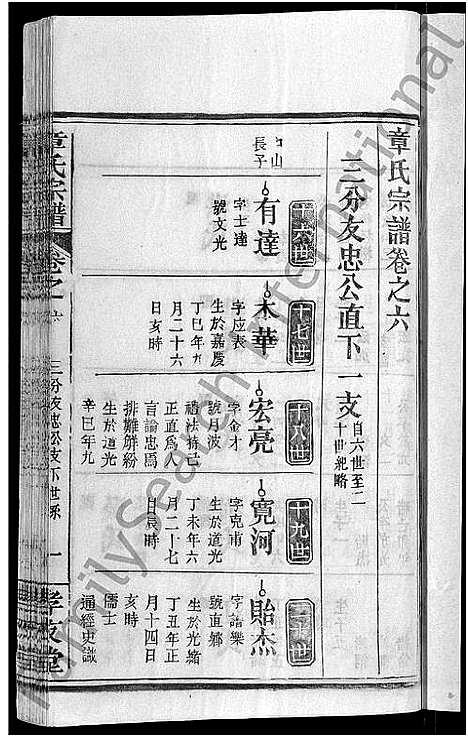 章氏宗譜卷之六
三分友忠公直下一支
自六世至二
十世紀略
十六世
有達
字士達
號文光
山
長子
十七世
木華
字应表
生於嘉慶
丁巳年九
月二十六
日亥時
十八世
宏亮
字金才
號月波
禮法持己
正直爲人
言論忠爲
排難觧紛
生於道光
辛巳年九
十九世
寬河
字克甫
生於道光
丁未年六
月二十七
日辰時
二十世
貽杰
字詒樂
號直卿
生於光緒
丁丑年正
月十四日
亥時
儒士
通經史識
章氏宗譜
卷之六
三分友忠公支下世系
一
孝友堂
FamilySearch International